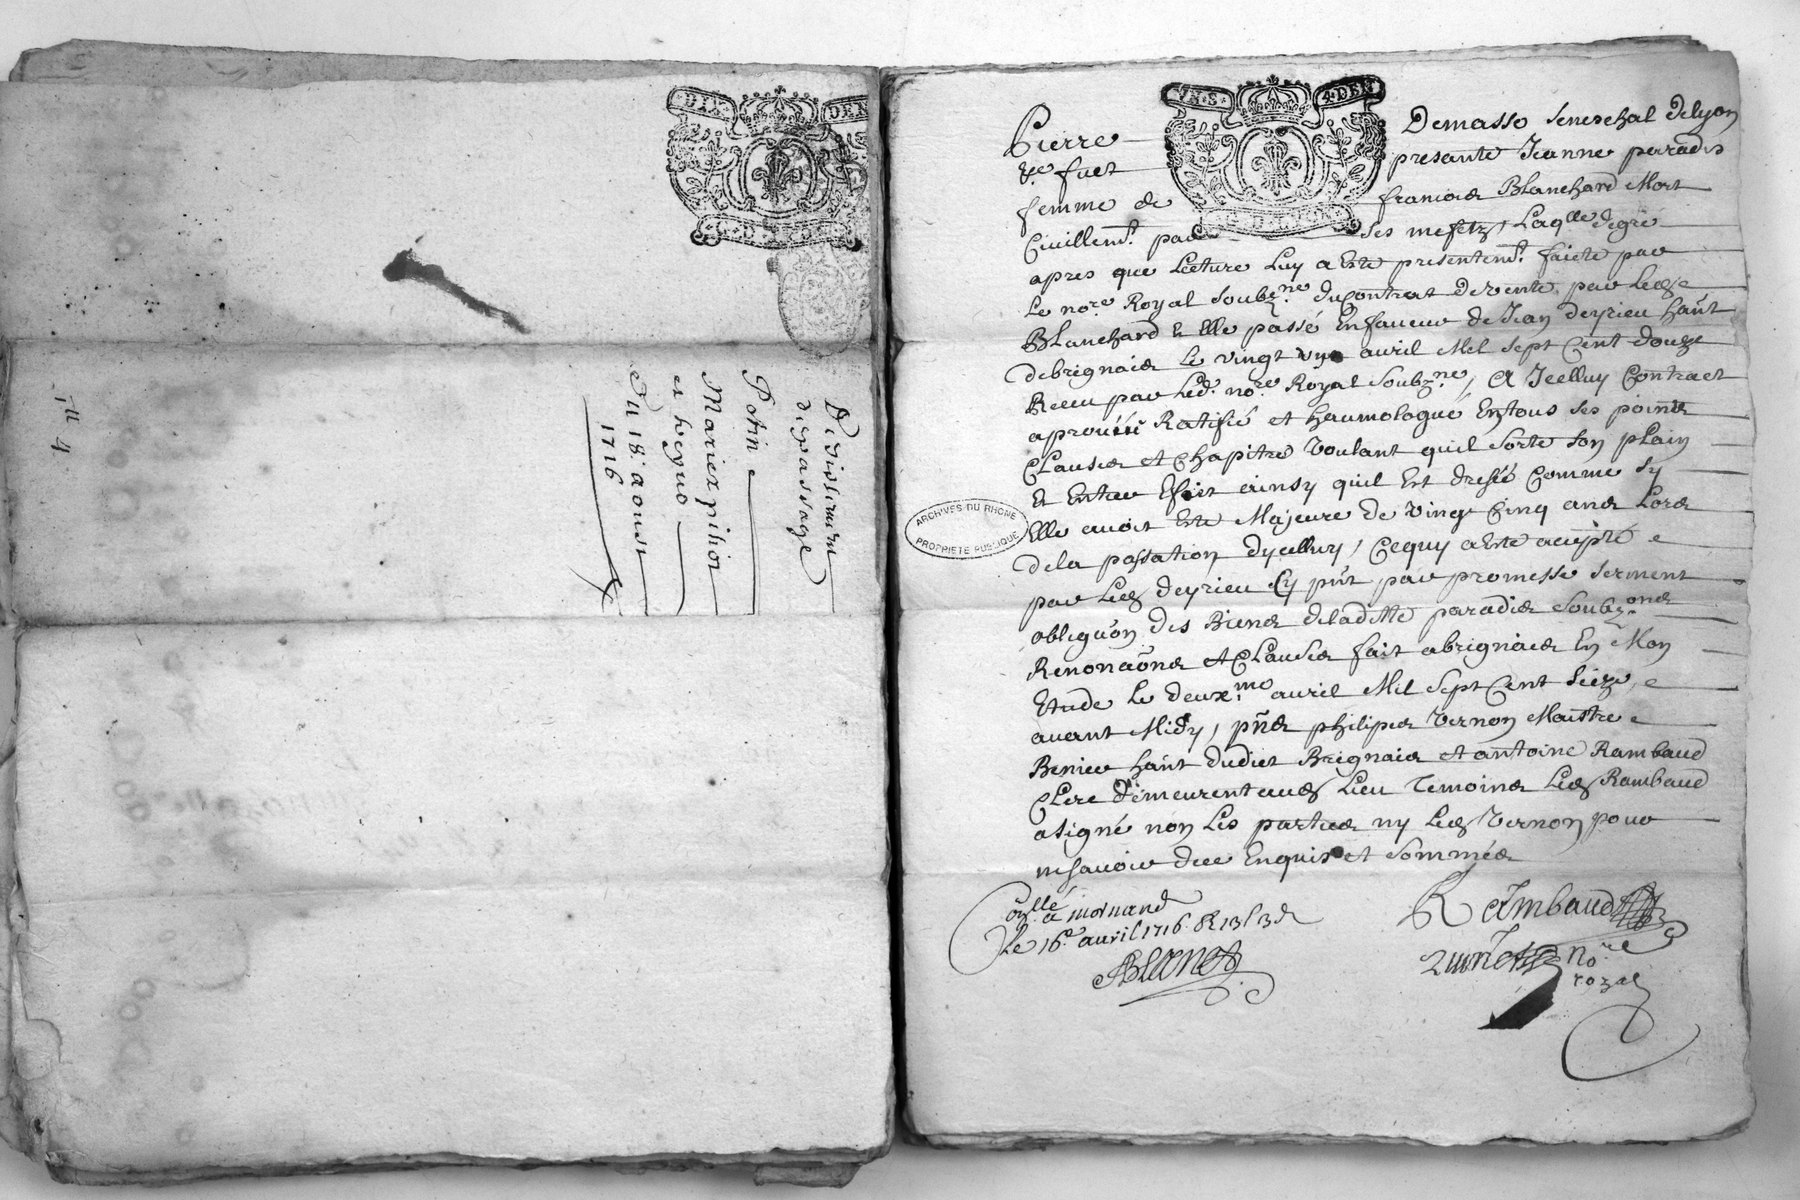 DIX DEN
G.D.LYON
Desistement
depassage
Potin
Marie pihion
et heyno
Du 18e aoust
1716
VN.S. 4.DEN
Pierre Demasso senechal delyon
fuet presante Jeanne paradis
femme de francois Blanchard Mort
Civillemt. par ses mesfetz, Laqlle degré
apres que Lecture Luy a Este presentemt. faicte par
Le nore. Royal soubzne. du Contrat devente par Ledz
Blanchard et Elle passé Enfaveur de Jean deyrieu hānt
debrignais Le vingt un avril Mil sept Cent douze
Receu par Led. nore. Royal soubzne, A Jcelluy Contract
aprouvé Ratifié et haumologué Entous ses points
Clauses et Chapitre Voulant quil sorte son plain
Et Entier Effait ainsy quil Est dressé Comme sy
Elle avoit Este Majeure de Vingt Cinq ans Lors
dela passation dycelluy, Cequy a Este accepté
par Ledz deyrieu Cy pn̄t par promesse serment
obligā͠on des Biens deladitte paradis soubz.ons
Renonā͠ons et Clauses fait a brignais En Mon
Etude Le deuxme. avril Mil sept Cent seize
avant Midy, pn̄s philipes Vernon Maistre
Benier hānt dudict Brignais et antoine Rambaud
Clerc demeurent audz Lieu Temoins Ledz Rambaud
a signé non Les parties ny Ledz Vernon pour
nesavoir de ce Enquis et sommés
ARCHIVES DU RHONE
PROPRIETE PUBLIQUE
Conllé a mornand
Le 16e avril 1716. R 13s 3d
Rambaud
nore
royal